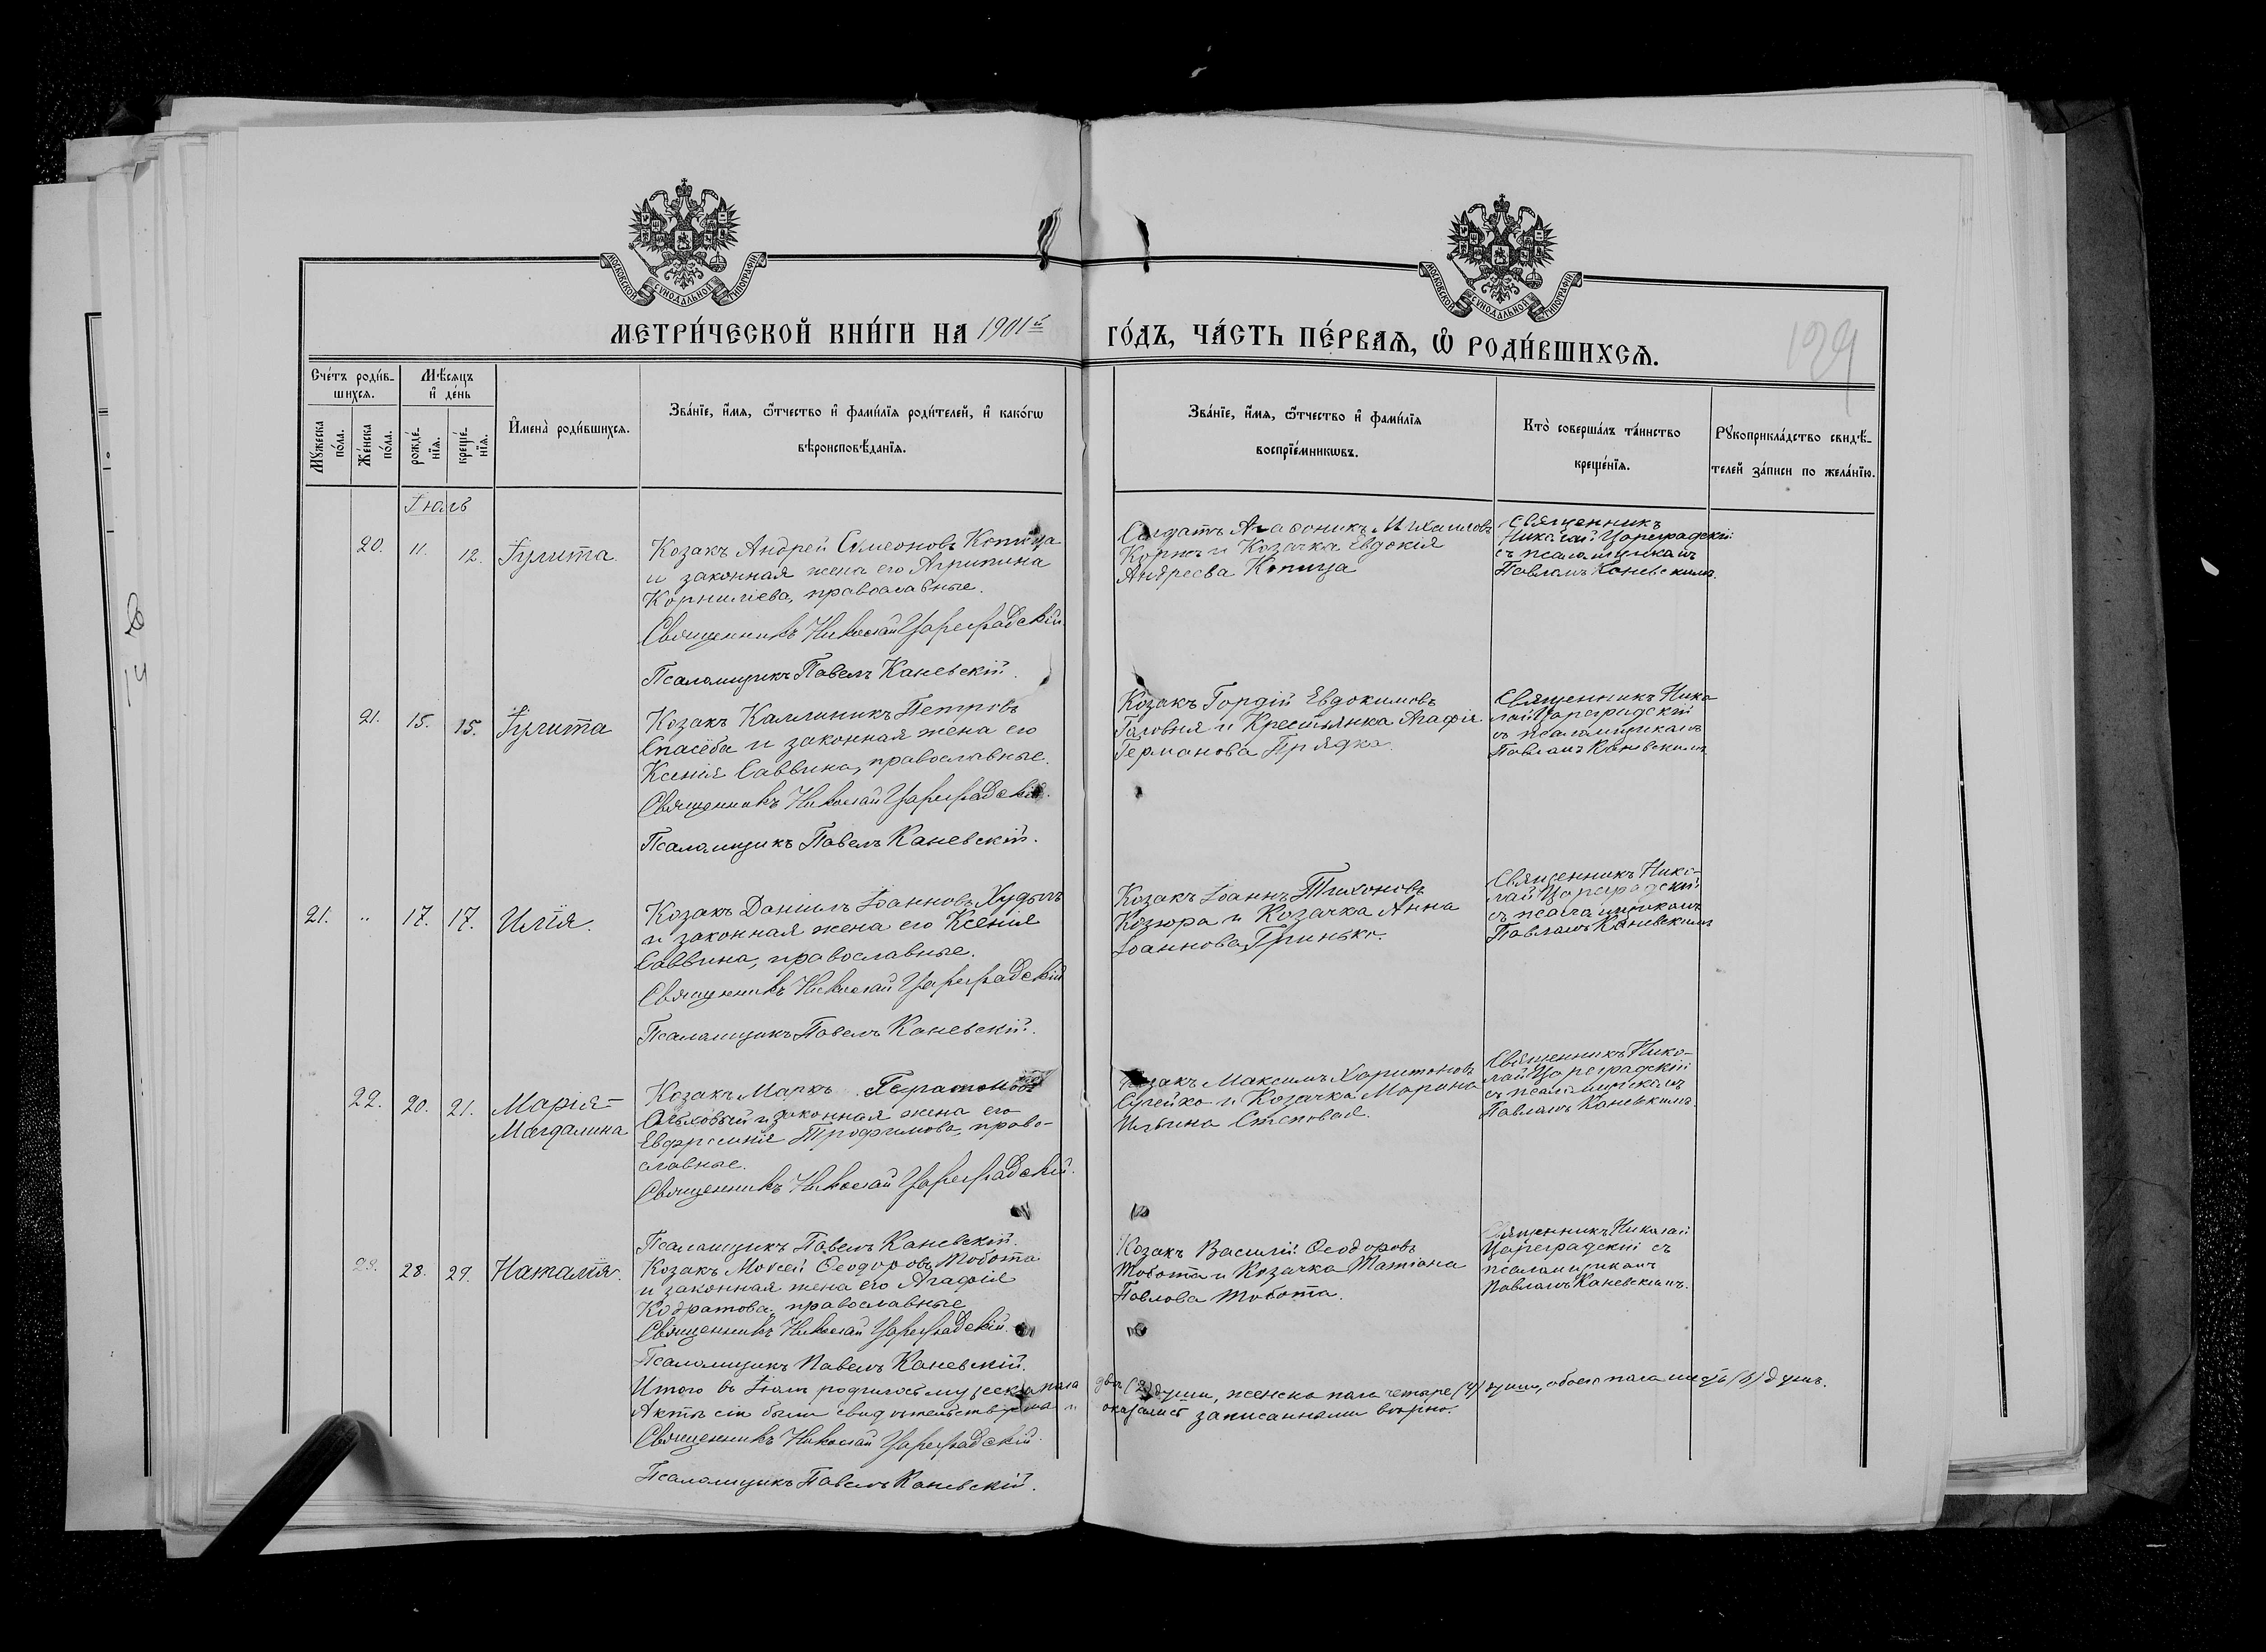 МОСКОВСКОЙ СУНОДАЛЬНОЙ ТИПОГРАФІИ
МОСКОВСКОЙ СУНОДАЛЬНОЙ ТИПОГРАФІИ
МЕТРИ́ЧЕСКОЙ КНИ́ГИ НА 1901й ГО́ДЪ, ЧА́СТЬ ПЕ́РВАѦ, Ѡ҆ РОДИ́ВШИХСѦ.
129
Сче́тъ роди́в-
шихсѧ.
Мѣ́сѧцъ
и҆ де́нь
Мꙋ́жеска
по́ла.
Же́нска
по́ла.
рожде́-
нїѧ.
креще́-
нїѧ.
И҆мена̀ роди́вшихсѧ.
Зва́нїе, и҆́мѧ, ѻ҆́тчество и҆ фами́лїѧ роди́телей, и҆ како́гѡ
вѣроисповѣ́данїѧ.
Зва́нїе, и҆́мѧ, ѻ҆́тчество и҆ фами́лїѧ
воспрїе́мникѡвъ.
Кто̀ соверша́лъ та́инство
креще́нїѧ.
Рꙋкоприкла́дство свидѣ́-
телей за́писи по жела́нїю.
Іюль
20. 11. 12. Іулита
Козакъ Андрей Симеоновъ Копица
и законная жена его Агрипина
Корниліева, православные.
Священникъ Николай Цареградскій.
Псаломщикъ Павелъ Каневскій.
Солдатъ Агафоникъ Михаиловъ
Коржъ и Козачка Евдокія
Андреева Копица
Священникъ
Николай Цареградскій
съ псаломщикомъ
Павломъ Каневскимъ.
21. 15. 15. Іулита
Козакъ Каллиникъ Петровъ
Спасёба и законная жена его
Ксенія Саввина, православные.
Священникъ Николай Цареградскій.
Псаломщикъ Павелъ Каневскій.
Козакъ Гордій Евдокимовъ
Головня и Крестьянка Агафія
Германова Прядка.
Священникъ Нико
лай Цареградскій
съ псаломщикомъ
Павломъ Каневскимъ
21. " 17. 17. Илія.
Козакъ Даніилъ Іоанновъ Худынъ
и законная жена его Ксенія
Саввина, православные.
Священникъ Николай Цареградскій
Псаломщикъ Павелъ Каневскій.
Козакъ Іоаннъ Тихоновъ
Козюра и Козачка Анна
Іоаннова Гринько.
Священникъ Нико-
лай Цареградскій
съ псаломщикомъ
Павломъ Каневскимъ
22. 20. 21. Марія-
Магдалина
Козакъ Маркъ
и законная жена его
Евфросинія Трофимова, право-
славные.
Священникъ Николай Цареградскій.
Псаломщикъ Павелъ Каневскій.
Козакъ Максимъ Харитоновъ
Сулейко и Козачка Марина
Ильина Степовая.
Священникъ Нико-
лай Цареградскій
съ псаломщикомъ
Павломъ Каневскимъ.
23. 28. 29. Наталія.
Козакъ Моѵсей Ѳеодоровъ Тобота
и законная жена его Агафія
Кодратова, православные
Священникъ Николай Цареградскій.
Псаломщикъ Павелъ Каневскій.
Козакъ Василій Ѳеодоровъ
Тобота и Козачка Татіана
Павлова Тобота.
Священникъ Николай
Цареградскій съ
псаломщикомъ
Павломъ Каневскимъ.
Итого въ Іюлѣ родилось мужеска пола два (2) души, женска пола четыре (4) души, обоего пола шесть (6) душъ.
Акты сіи были свидѣтельствованы и оказались записанными вѣрно.
Священникъ Николай Цареградскій.
Псаломщикъ Павелъ Каневскій.